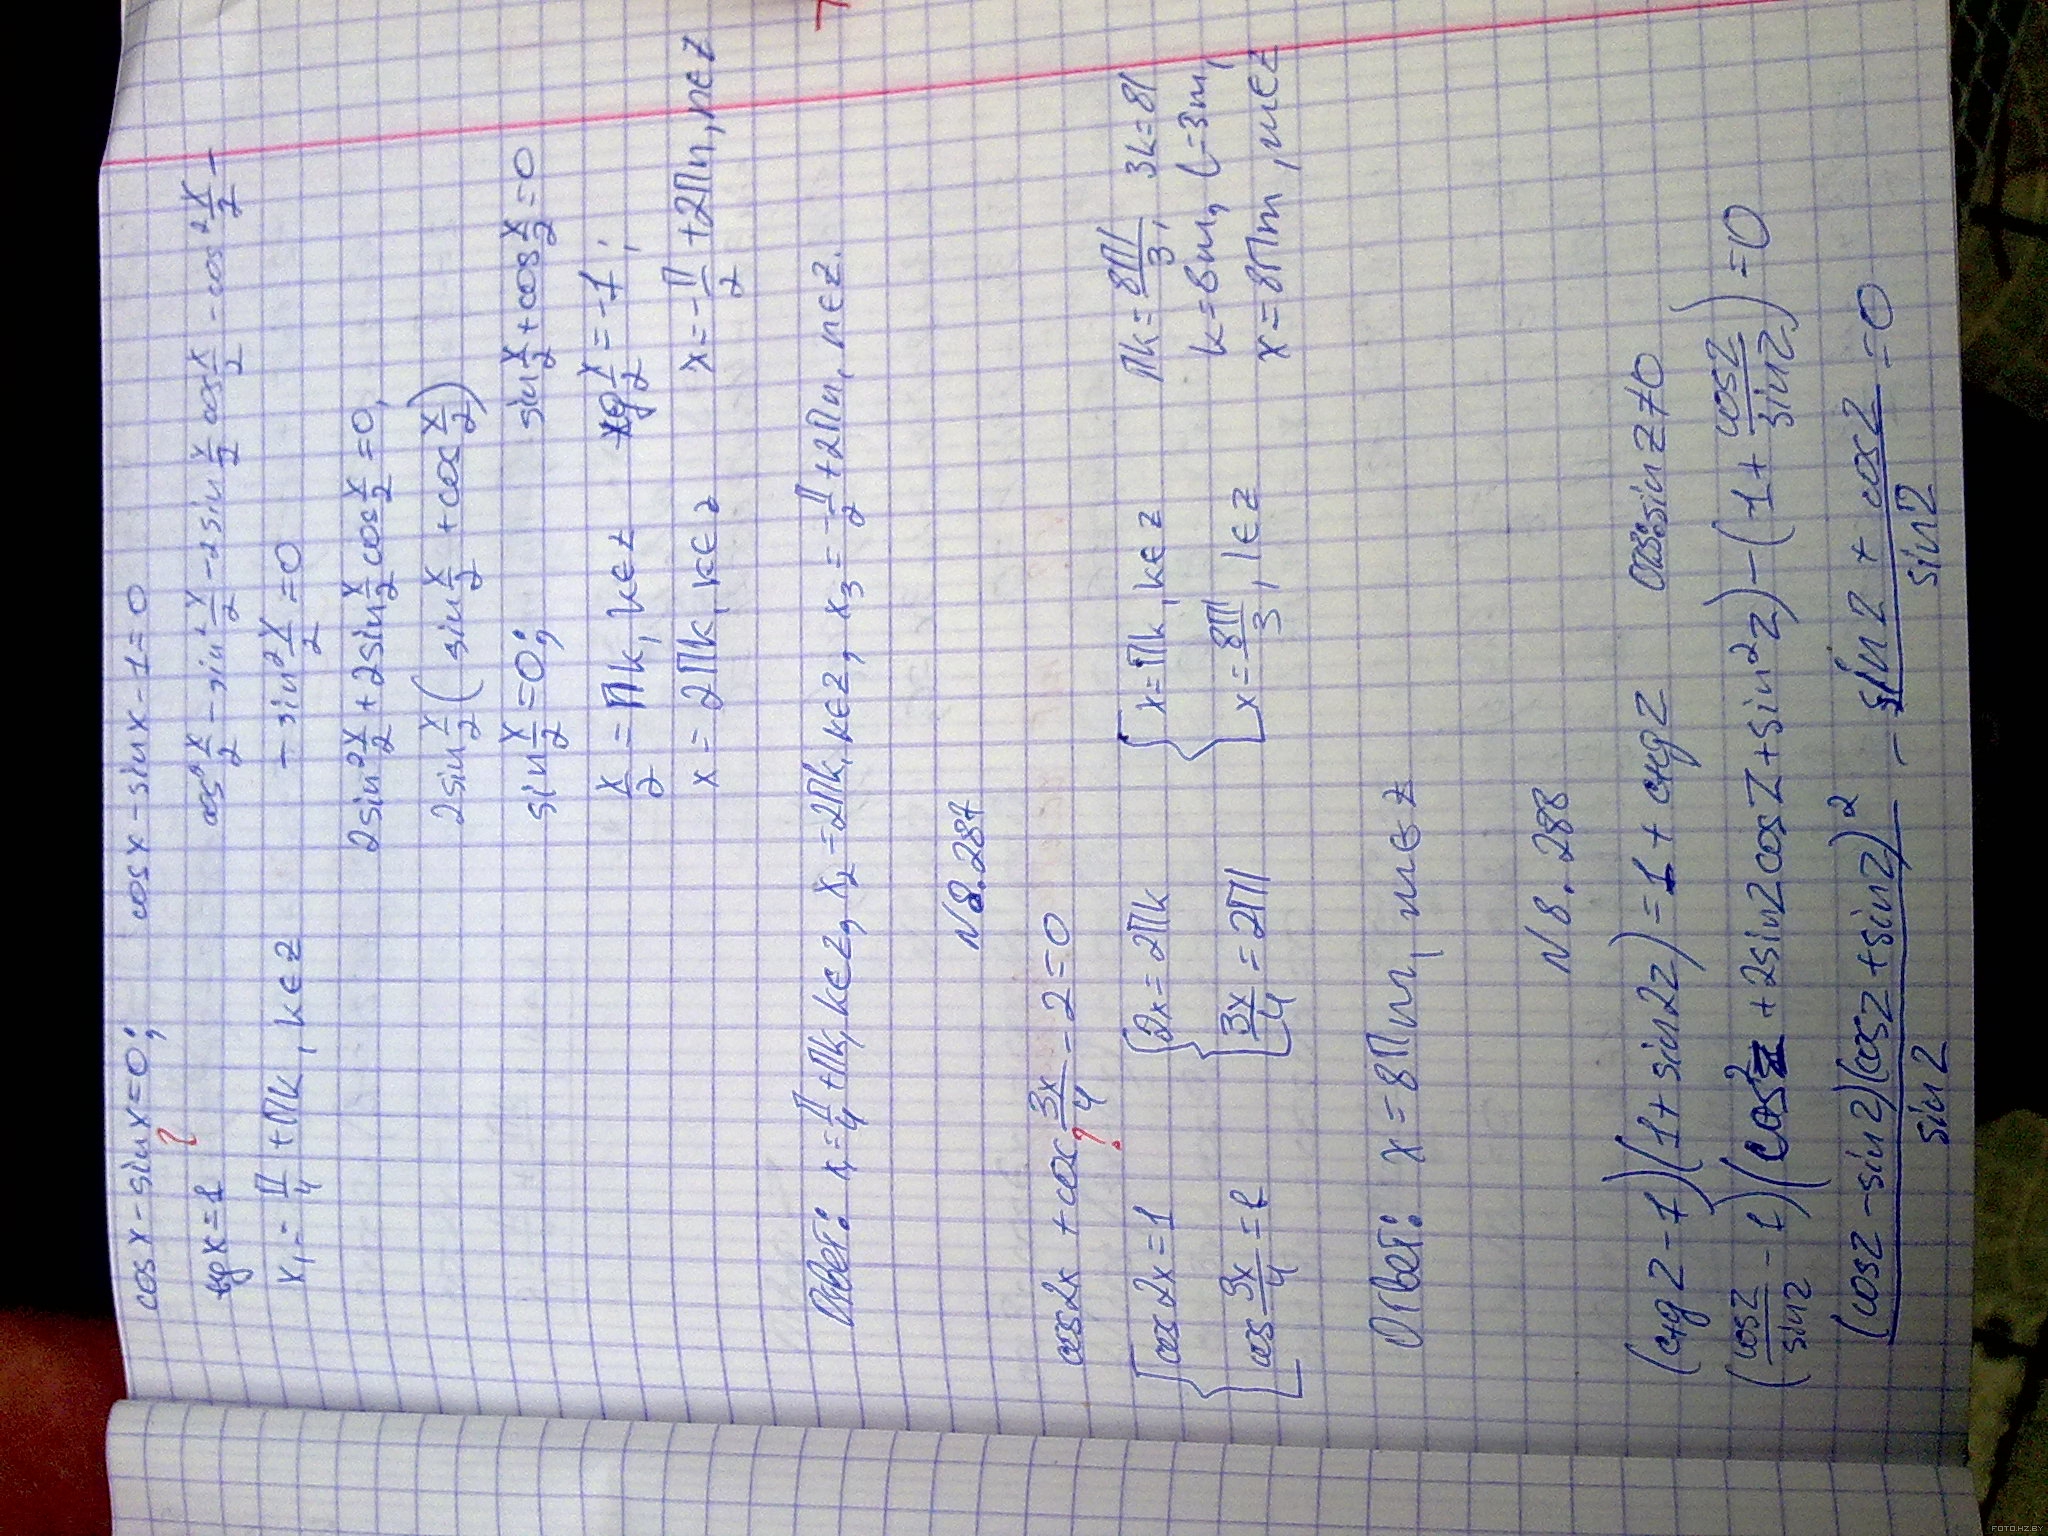 cosx - sinx = 0; cosx - sinx - 1 = 0
tgx = 1 cos²x/2 - sin²x/2 - 2sinx/2 cosx/2 - cos²x/2 -
x₁ = П/4 + Пk, k∈z - sin²x/2 = 0
2sin²x/2 + 2sinx/2 cosx/2 = 0,
2sinx/2 (sinx/2 + cosx/2)
sinx/2 = 0; sinx/2 + cosx/2 = 0
x/2 = Пk, k∈z tgx/2 = -1;
x = 2Пk, k∈z x = -П/2 + 2Пn, n∈z
Ответ: x₁ = П/4 + Пk, k∈z, x₂ = 2Пk, k∈z, x₃ = -П/2 + 2Пn, n∈z.
N8.287
cos2x + cos3x/4 - 2 = 0
{cos2x = 1 {2x = 2Пk {x = Пk, k∈z Пk = 8Пl/3, 3k = 8l
{cos3x/4 = 1 {3x/4 = 2Пl {x = 8Пl/3, l∈z k = 8m, l = 3m,
x = 8Пm, m∈z
Ответ: x = 8Пm, m∈z
N8.288
(ctgz - 1)(1 + sin2z) = 1 + ctgz sinz ≠ 0
(cosz/sinz - 1)(cos²z + 2sinzcosz + sin²z) - (1 + cosz/sinz) = 0
(cosz - sinz)(cosz + sinz)²/sinz - sinz + cosz/sinz = 0